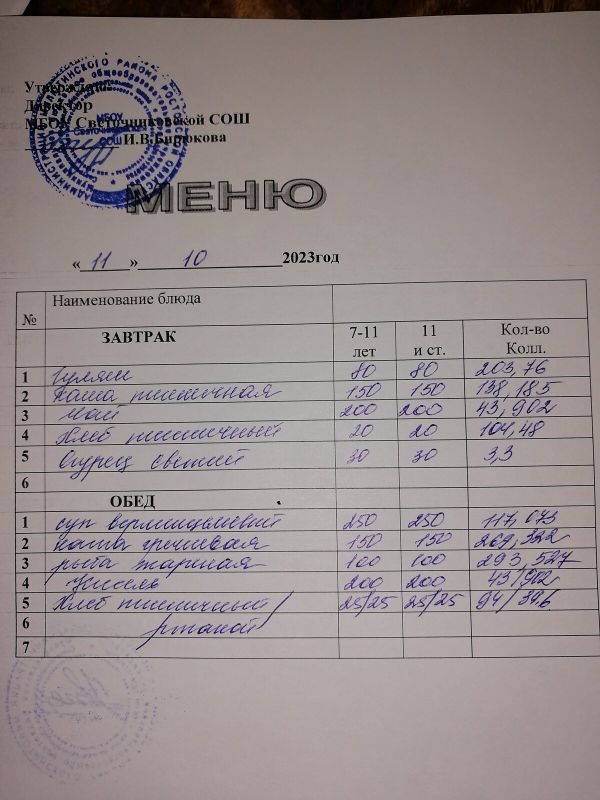 Утверждаю
Директор
МБОУ Светочниковской СОШ
И.В.Бирюкова
МЕНЮ
« 11 » 10 2023год
№ Наименование блюда
ЗАВТРАК 7-11 лет 11 и ст. Кол-во Колл.
1 Гуляш 80 80 203,76
2 Каша пшеничная 150 150 138,185
3 Чай 200 200 43,902
4 Хлеб пшеничный 20 20 104,48
5 Огурец свежий 30 30 3,3
6
ОБЕД
1 суп вермишелевый 250 250 117,073
2 каша гречневая 150 150 269,322
3 рыба жареная 100 100 293,527
4 Кисель 200 200 43,902
5 Хлеб пшеничный/ 25/25 25/25 94/39,6
6 ржаной
7